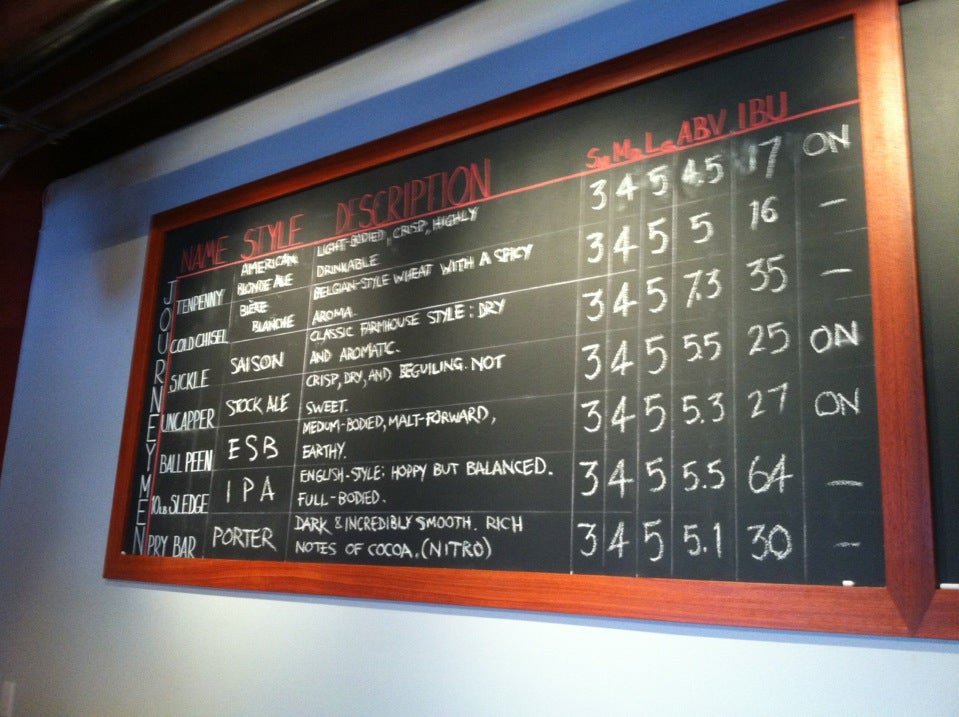 NAME STYLE DESCRIPTION Sm Me La ABV IBU
JOURNEYMEN
TENPENNY
AMERICAN
BLONDE ALE
LIGHT-BODIED, CRISP, HIGHLY
DRINKABLE
3 4 5 4.5 17 ON
COLD CHISEL
BIÈRE
BLANCHE
BELGIAN-STYLE WHEAT WITH A SPICY
AROMA.
3 4 5 5 16 –
SICKLE
SAISON
CLASSIC FARMHOUSE STYLE: DRY
AND AROMATIC.
3 4 5 7.3 35 –
UNCAPPER
STOCK ALE
CRISP, DRY, AND BEGUILING. NOT
SWEET.
3 4 5 5.5 25 ON
BALL PEEN
ESB
MEDIUM-BODIED, MALT-FORWARD,
EARTHY.
3 4 5 5.3 27 ON
10LB SLEDGE
IPA
ENGLISH-STYLE: HOPPY BUT BALANCED.
FULL-BODIED.
3 4 5 5.5 64 –
PRY BAR
PORTER
DARK & INCREDIBLY SMOOTH. RICH
NOTES OF COCOA. (NITRO)
3 4 5 5.1 30 –